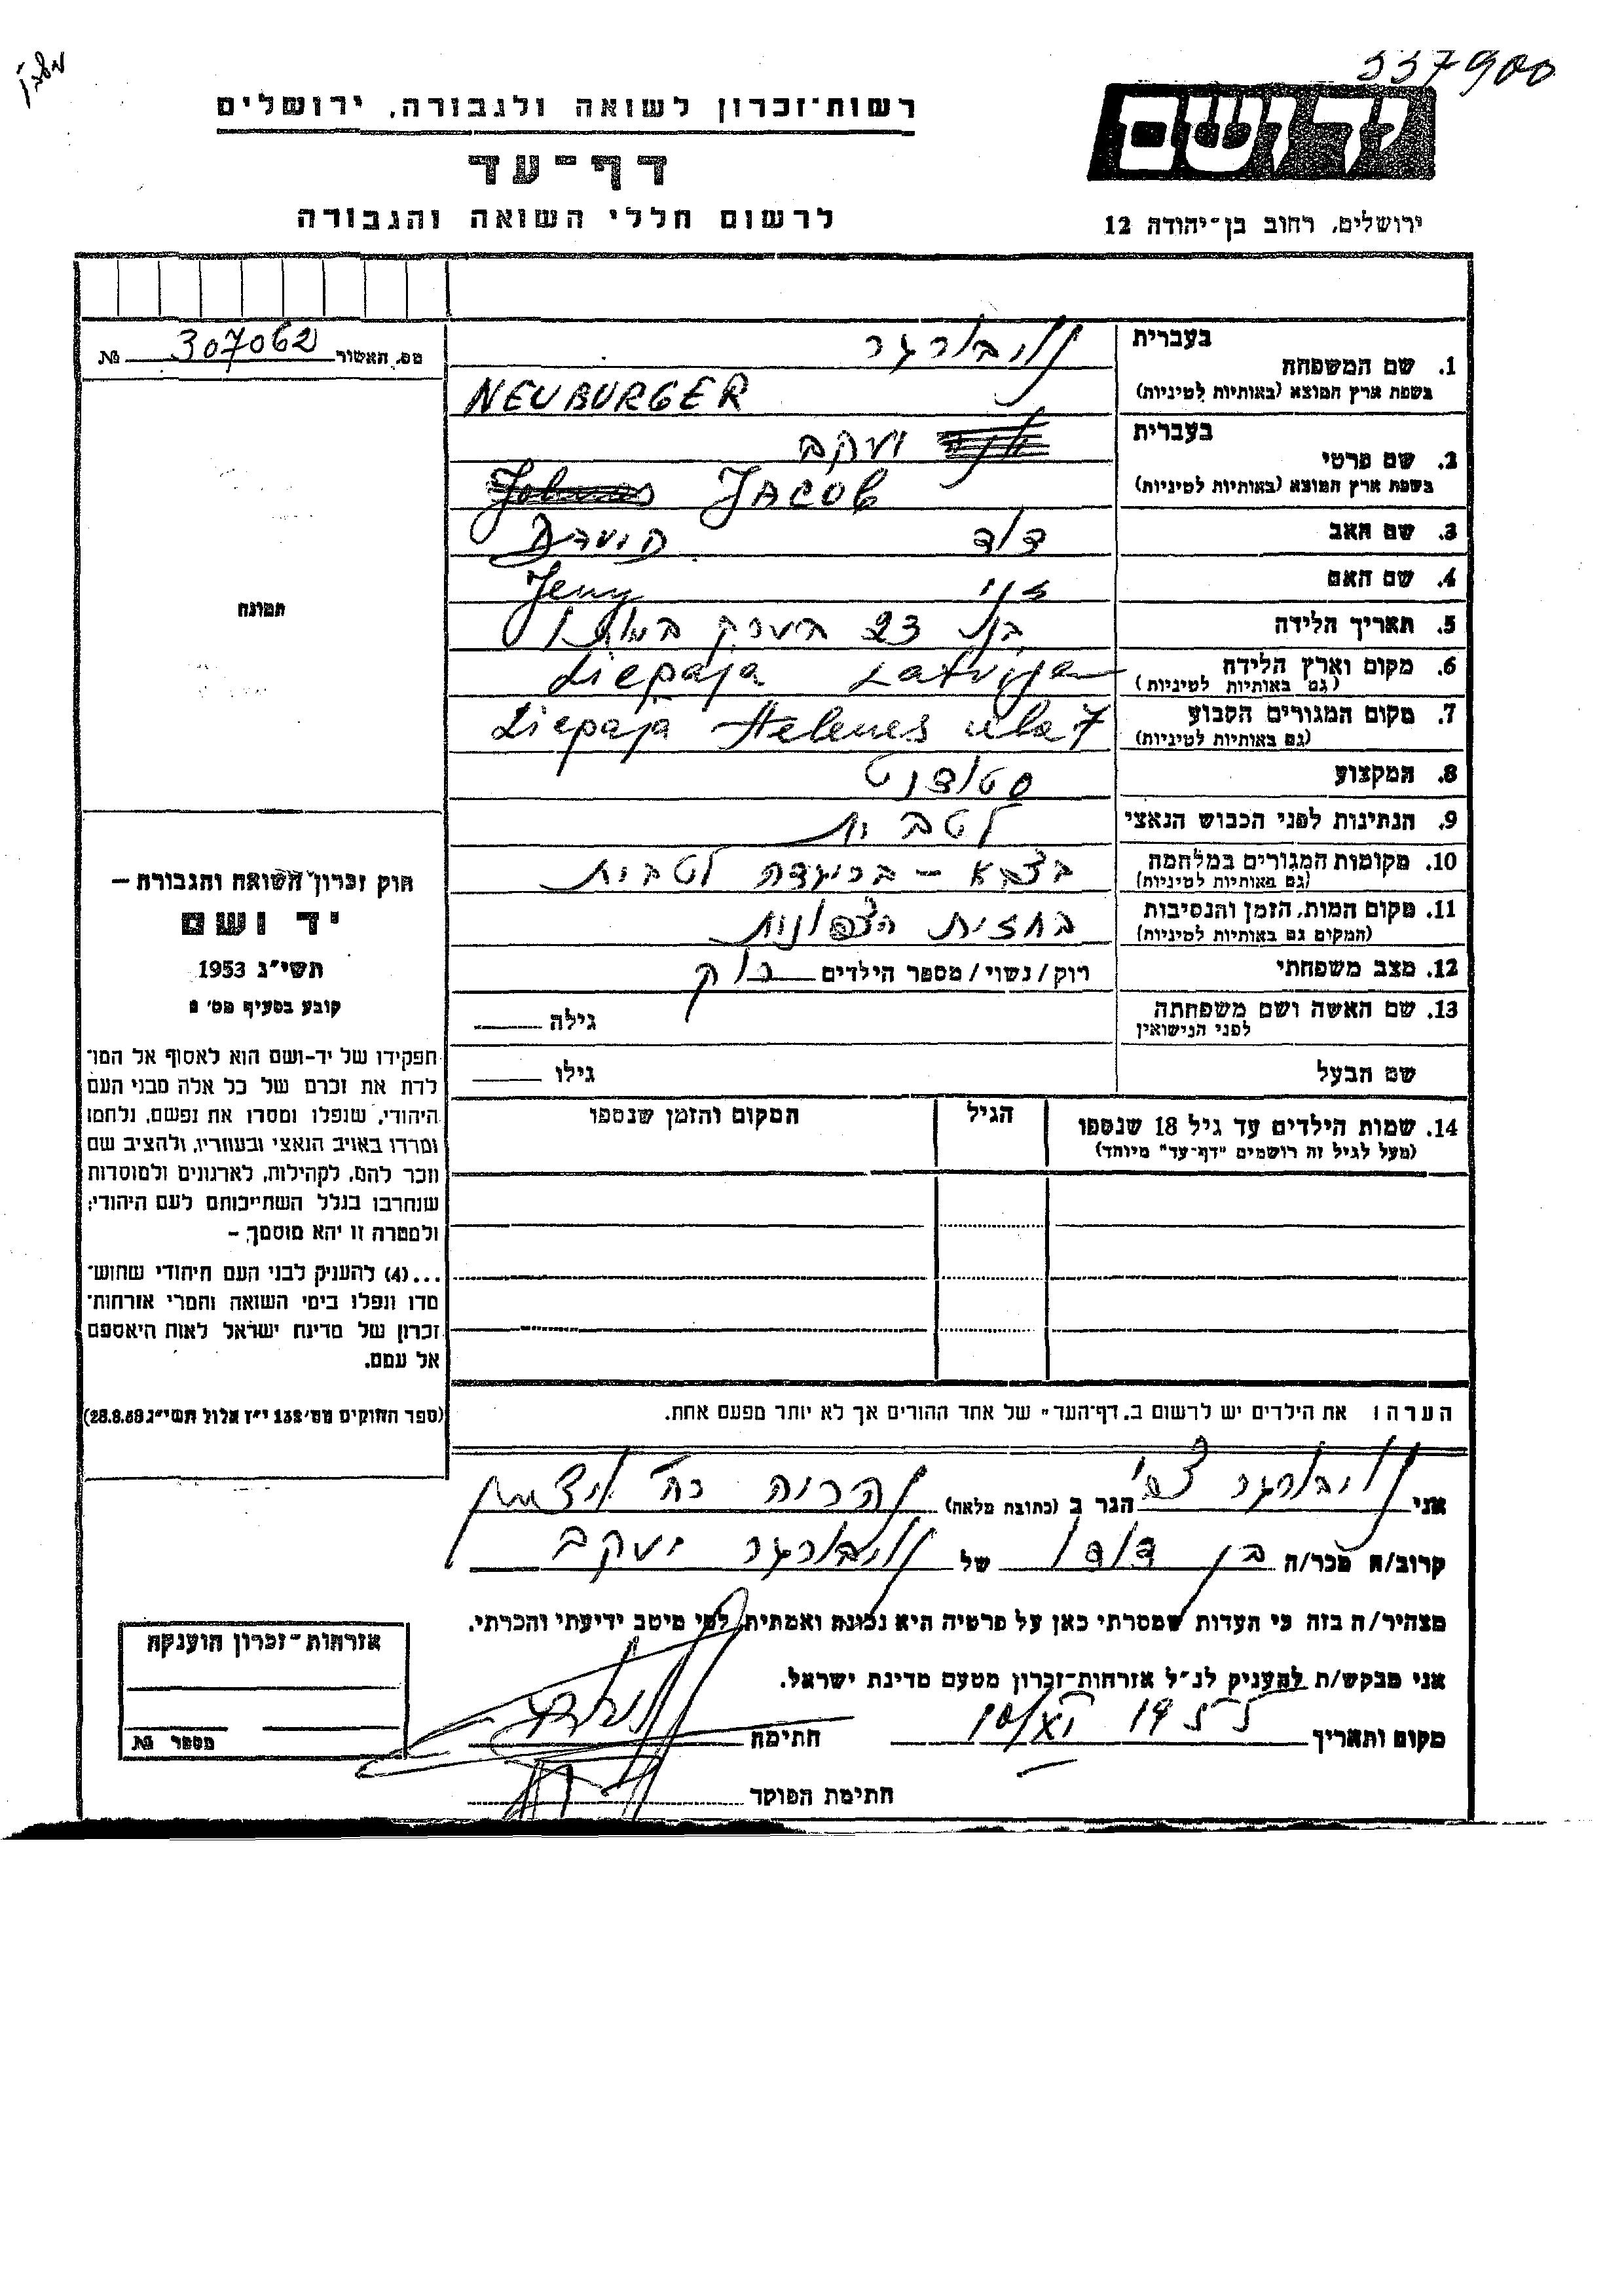 337900
רשות־זכרון לשואה ולגבורה, ירושלים
יד ושם
דף־עד
לרשום חללי השואה והגבורה
ירושלים, רחוב בן־יהודה 12
מס. האשור № 307062
תמונה
בעברית נויבורגר
1. שם המשפחה
בשפת ארץ המוצא (באותיות לטיניות) NEUBURGER
בעברית יעקב
2. שם פרטי
בשפת ארץ המוצא (באותיות לטיניות) JACOB
3. שם האב דוד
4. שם האם זני Jeny
5. תאריך הלידה בן 23 הערך במותו
6. מקום וארץ הלידה Liepaja Latvija
(גם באותיות לטיניות)
7. מקום המגורים הקבוע Liepaja Helenes iela 7
(גם באותיות לטיניות)
8. המקצוע סטודנט
9. הנתינות לפני הכבוש הנאצי לטבית
10. מקומות המגורים במלחמה בצבא - בריגדה לטבית
(גם באותיות לטיניות)
11. מקום המות, הזמן והנסיבות בחזית הצפונית
(המקום גם באותיות לטיניות)
12. מצב משפחתי רוק/נשוי/מספר הילדים רוק
13. שם האשה ושם משפחתה גילה
לפני הנישואין
שם הבעל גילו
14. שמות הילדים עד גיל 18 שנספו הגיל המקום והזמן שנספו
(מעל לגיל זה רושמים "דף־עד" מיוחד)
חוק זכרון השואה והגבורה –
יד ושם
תשי״ג 1953
קובע בסעיף מס׳ 2
תפקידו של יד־ושם הוא לאסוף אל המו־
לדת את זכרם של כל אלה מבני העם
היהודי, שנפלו ומסרו את נפשם, נלחמו
ומרדו באויב הנאצי ובעוזריו, ולהציב שם
וזכר להם, לקהילות, לארגונים ולמוסדות
שנחרבו בגלל השתייכותם לעם היהודי;
ולמטרה זו יהא מוסמך, –
...(4) להעניק לבני העם היהודי שהוש־
מדו ונפלו בימי השואה והמרי אזרחות־
זכרון של מדינת ישראל לאות היאספם
אל עמם.
(ספר החוקים מס׳ 132 י״ז אלול תשי״ג 28.8.53)
הערה: את הילדים יש לרשום ב„דף־העד" של אחד ההורים אך לא יותר מפעם אחת.
אני נויבורגר צבי הגר ב (כתובת מלאה) נהריה רח׳ ויצמן
קרוב/ה מכר/ה בן דודו של נויבורגר יעקב
מצהיר/ה בזה כי העדות שמסרתי כאן על פרטיה היא נכונה ואמתית, לפי מיטב ידיעתי והכרתי.
אני מבקש/ת להעניק לנ״ל אזרחות־זכרון מטעם מדינת ישראל.
מקום ותאריך 1955 חתימה
חתימת הפוקד
אזרחות־זכרון הוענקה
מספר №